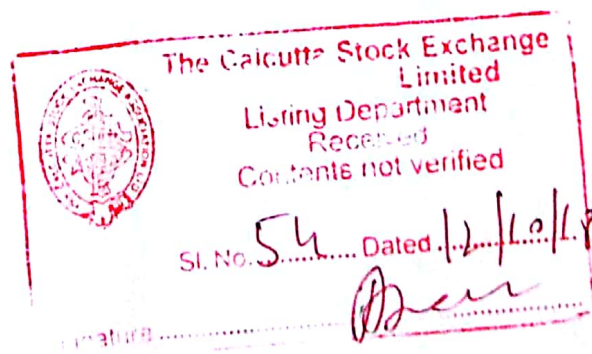 The Calcutta Stock Exchange
Limited
Listing Department
Received
Contents not verified
Sl. No. 54 Dated
Signature